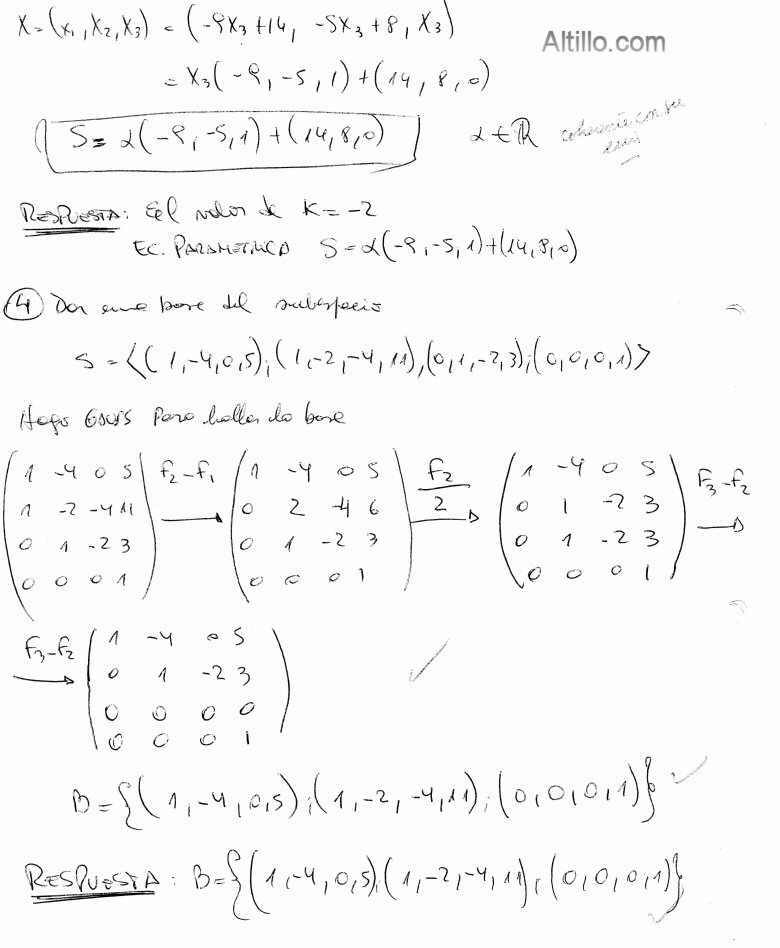 X = (x₁, x₂, x₃) = (-9x₃+14, -5x₃+8, x₃)
Altillo.com
= x₃(-9, -5, 1) + (14, 8, 0)
S = α(-9, -5, 1) + (14, 8, 0) α ∈ ℝ
coherente con su
RESPUESTA: El valor de K = -2
EC. PARAMETRICA S = α(-9, -5, 1) + (14, 8, 0)
④ Dar una base del subespacio
S = <(1, -4, 0, 5); (1, -2, -4, 11), (0, 1, -2, 3); (0, 0, 0, 1)>
Hago Gauss para hallar la base
1 -4 0 5 F₂-F₁ 1 -4 0 5 F₂/2 1 -4 0 5 F₃-F₂
1 -2 -4 11 0 2 -4 6 0 1 -2 3
0 1 -2 3 0 1 -2 3 0 1 -2 3
0 0 0 1 0 0 0 1 0 0 0 1
F₃-F₂ 1 -4 0 5
0 1 -2 3
0 0 0 0
0 0 0 1
B = {(1, -4, 0, 5); (1, -2, -4, 11); (0, 0, 0, 1)}
RESPUESTA: B = {(1, -4, 0, 5); (1, -2, -4, 11); (0, 0, 0, 1)}